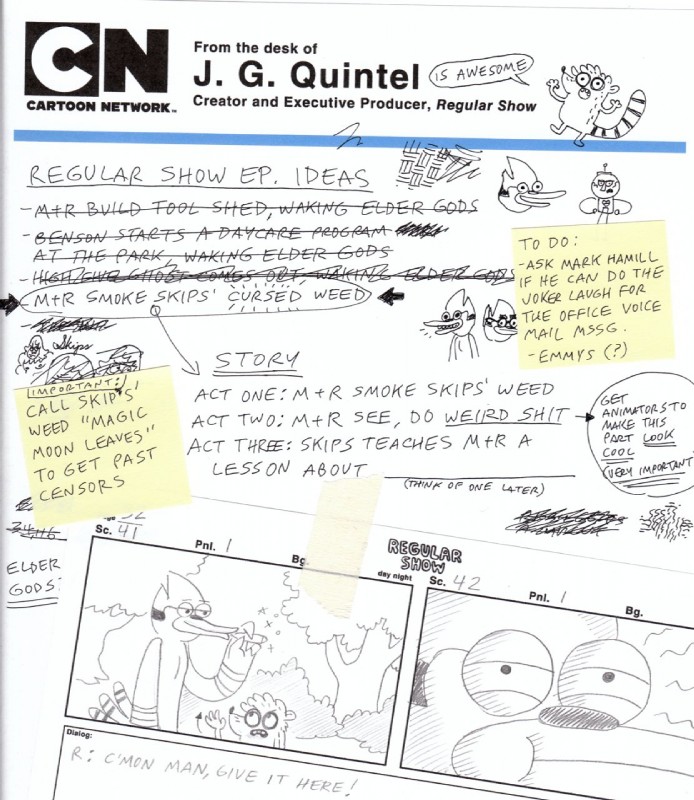 CN
CARTOON NETWORK™
From the desk of
J. G. Quintel
IS AWESOME
Creator and Executive Producer, Regular Show
REGULAR SHOW EP. IDEAS
- M+R BUILD TOOL SHED, WAKING ELDER GODS
- BENSON STARTS A DAYCARE PROGRAM
AT THE PARK, WAKING ELDER GODS
- HIGH FIVE GHOST COMES OUT, WAKING ELDER GODS
- M+R SMOKE SKIPS' CURSED WEED
TO DO:
- ASK MARK HAMILL
IF HE CAN DO THE
JOKER LAUGH FOR
THE OFFICE VOICE
MAIL MSSG.
- EMMYS (?)
Skips
IMPORTANT:
CALL SKIPS'
WEED "MAGIC
MOON LEAVES"
TO GET PAST
CENSORS
STORY
ACT ONE: M+R SMOKE SKIPS' WEED
ACT TWO: M+R SEE, DO WEIRD SHIT
ACT THREE: SKIPS TEACHES M+R A
LESSON ABOUT
(THINK OF ONE LATER)
GET
ANIMATORS TO
MAKE THIS
PART LOOK
COOL
(VERY IMPORTANT)
ELDER
GODS
REGULAR
SHOW
day night
Sc. 41
Pnl. 1
Bg.
Sc. 42
Pnl. 1
Bg.
Dialog:
R: C'MON MAN, GIVE IT HERE!